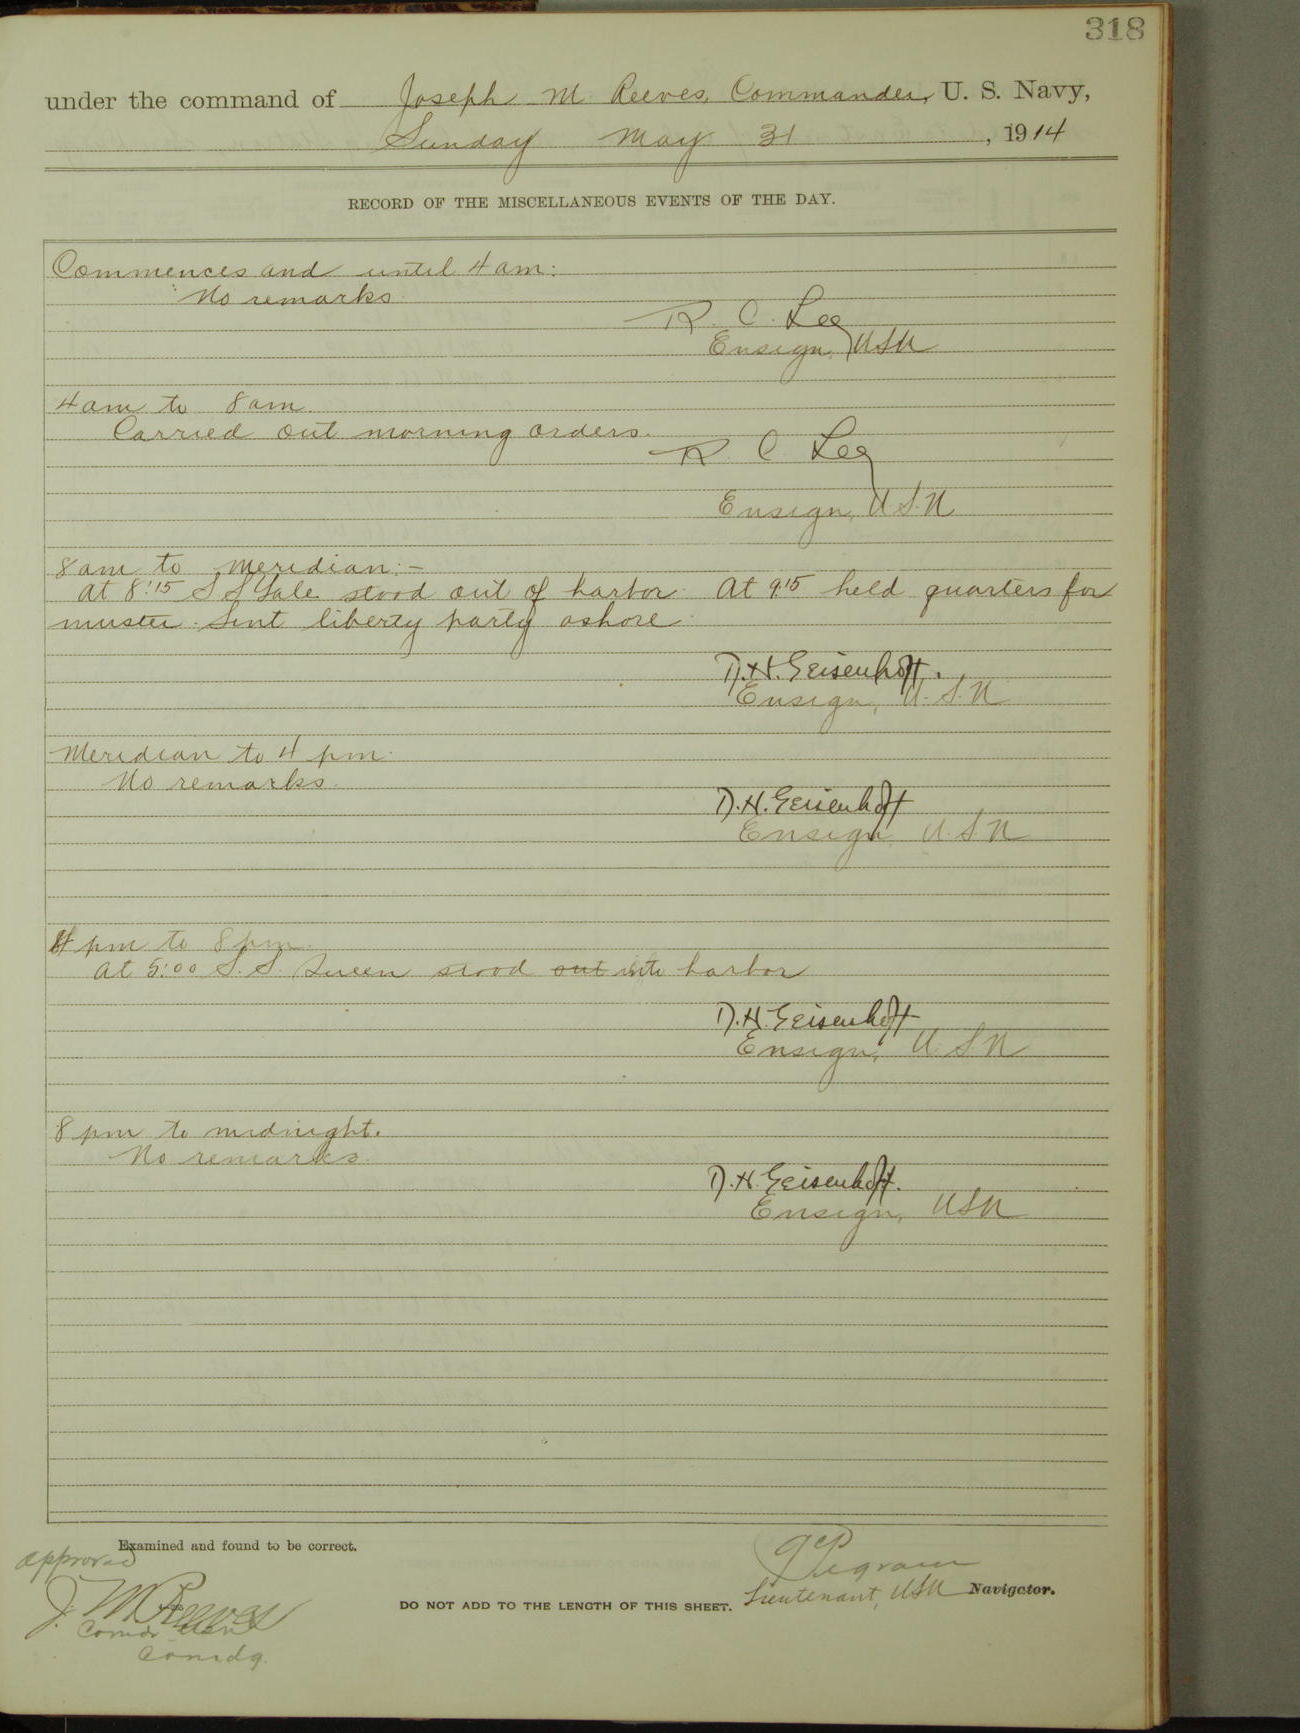 318
under the command of Joseph M Reeves, Commander, U. S. Navy,
Sunday May 31, 1914
RECORD OF THE MISCELLANEOUS EVENTS OF THE DAY.
Commences and until 4 am:
No remarks
R. C. Lee
Ensign, USN
4 am to 8 am.
Carried out morning orders.
R. C. Lee
Ensign, U.S.N
8 am to Meridian:-
At 8:15 S S Yale stood out of harbor. At 9:15 held quarters for
muster. Sent liberty party ashore.
D.H. Geisenhoff.
Ensign, U.S.N
Meridian to 4 pm.
No remarks.
D.H. Geisenhoff
Ensign, U.S.N
4 pm to 8 pm.
At 5:00 S.S. Queen stood out into harbor
D.H. Geisenhoff
Ensign, U.S.N
8 pm to midnight.
No remarks.
D.H. Geisenhoff.
Ensign, USN
Examined and found to be correct.
approved
J. M. Reeves
Comdr USN
Comdg.
DO NOT ADD TO THE LENGTH OF THIS SHEET.
Pegram
Lieutenant, USN Navigator.